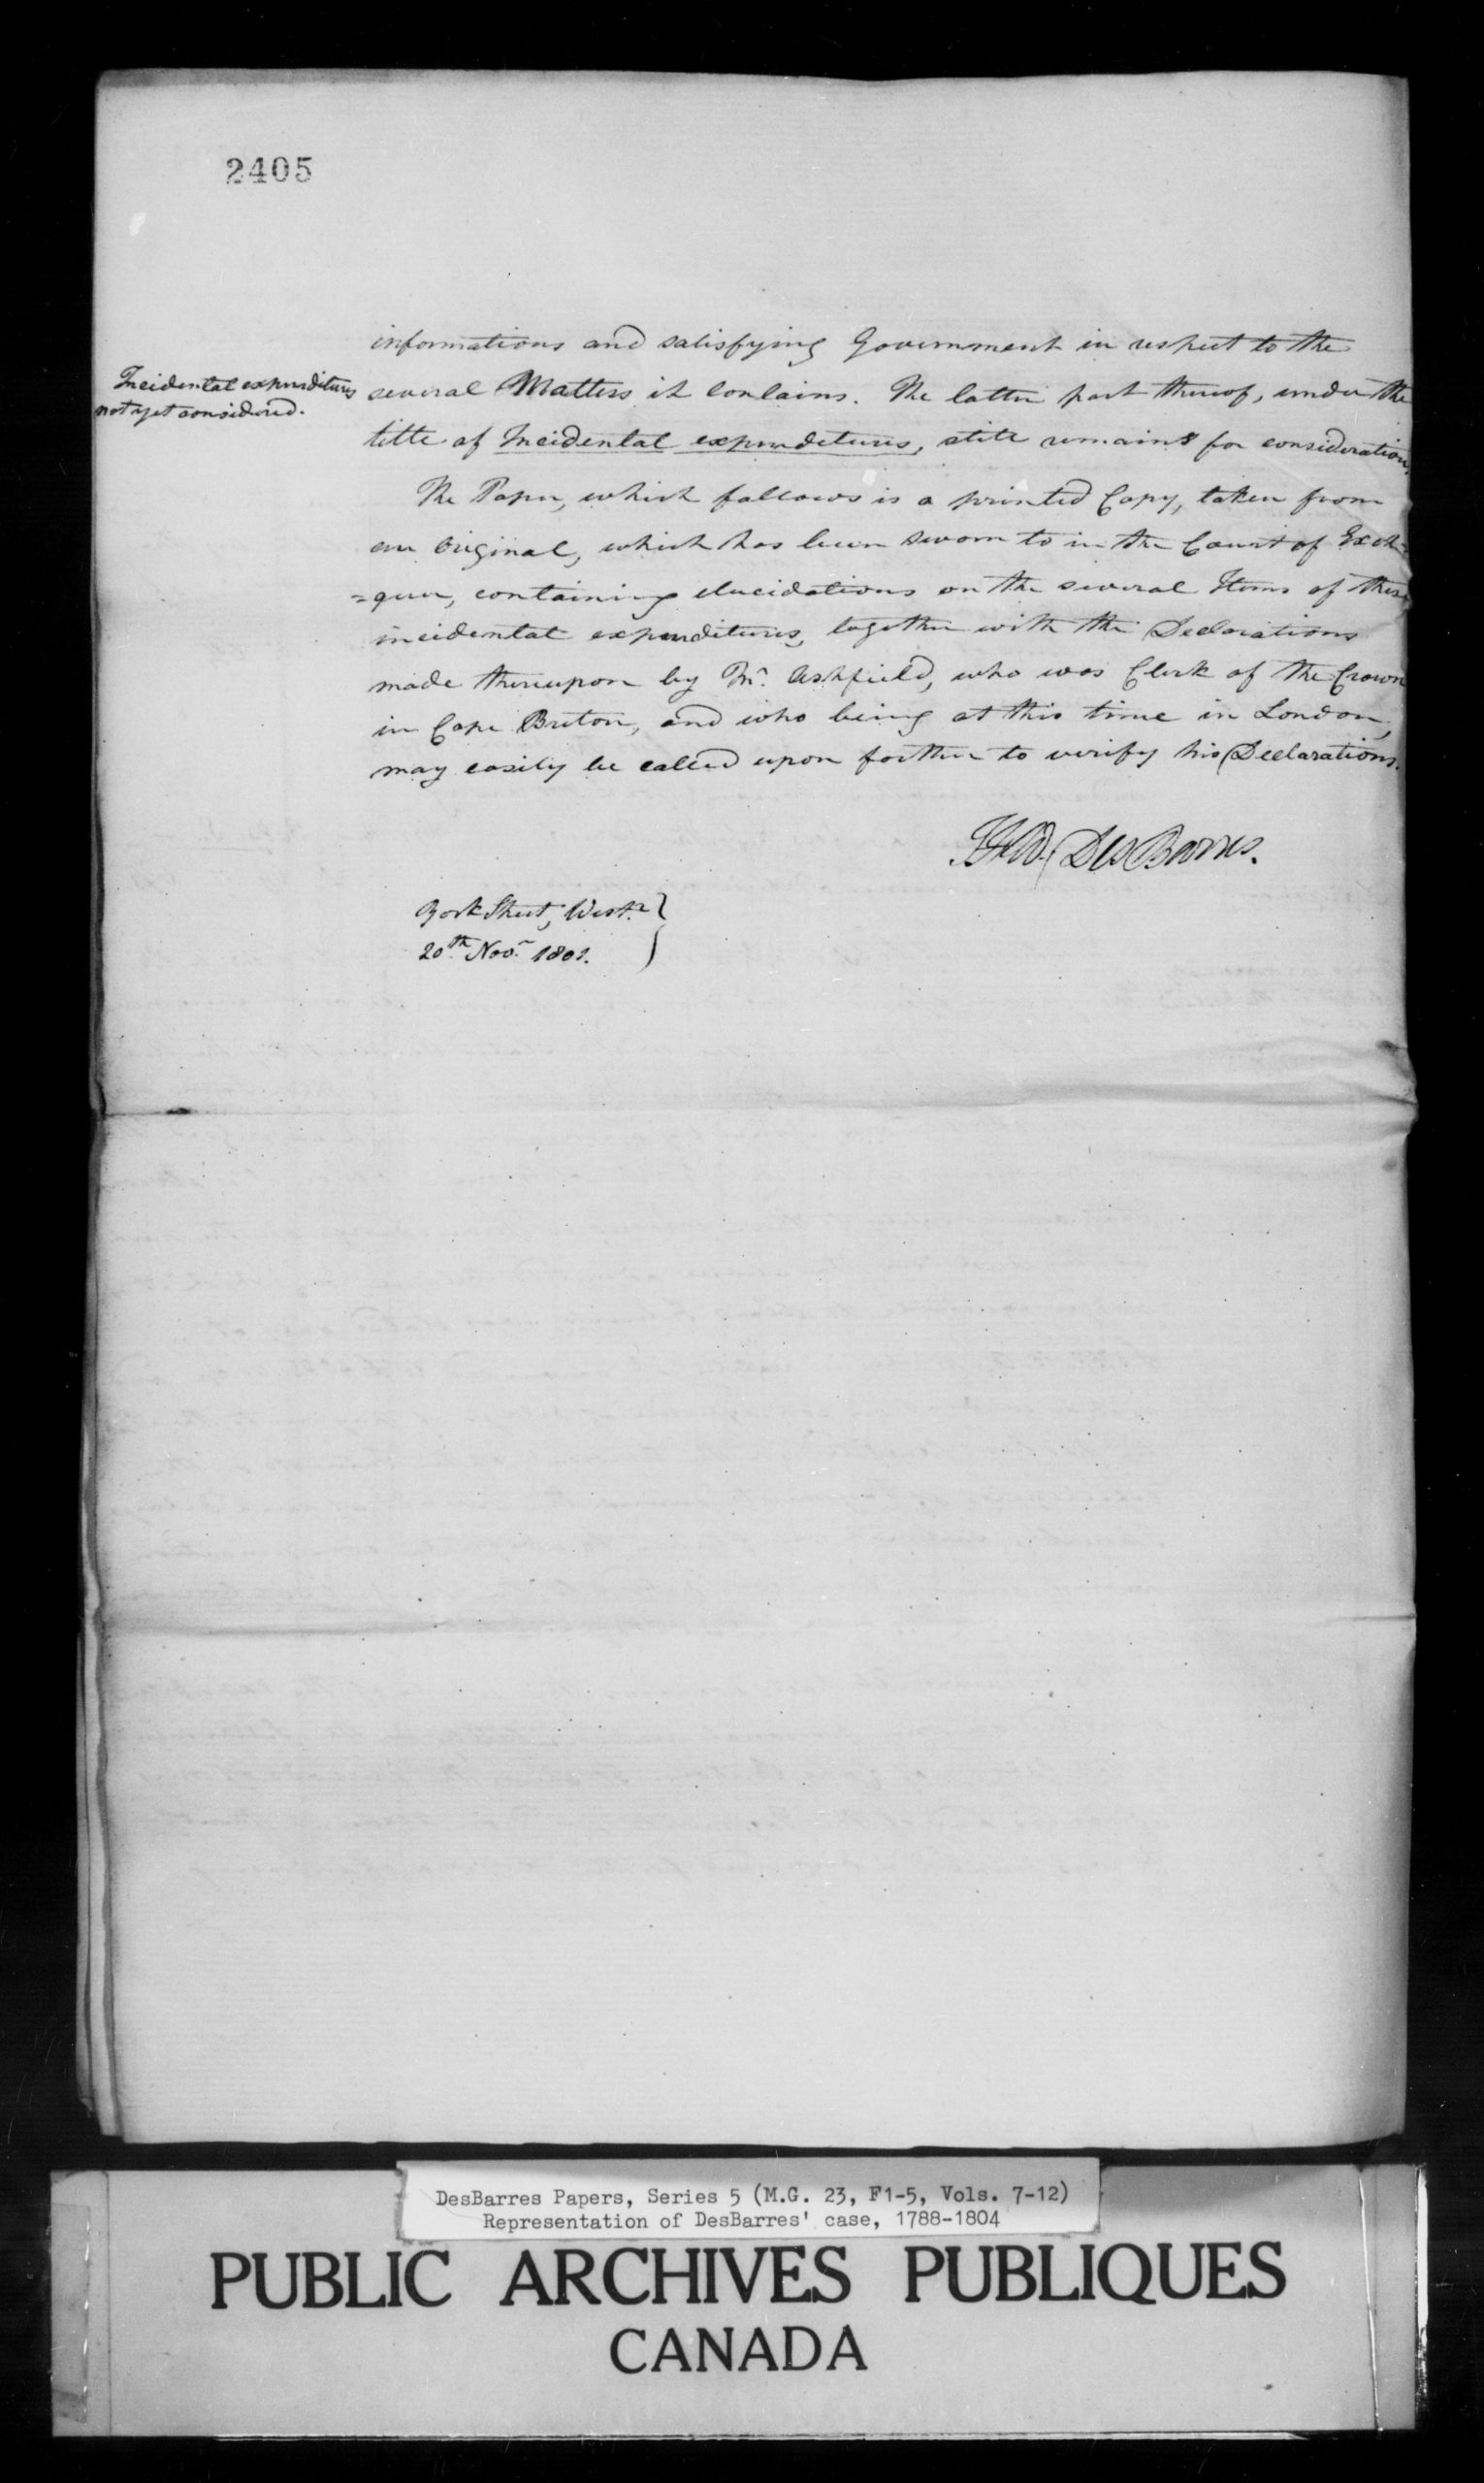 2405
informations and satisfying Government in respect to the
Incidental expenditures
not yet considered.
several Matters it contains. The latter part thereof, under the
title of Incidental expenditures, still remains for consideration.
The Paper, which follows is a printed Copy, taken from
an Original, which has been sworn to in the Court of Exche=
=quer, containing elucidations on the several Items of these
incidental expenditures, together with the Declarations
made thereupon by Mr. Ashfield, who was Clerk of the Crown
in Cape Breton, and who being at this time in London,
may easily be called upon further to verify his Declarations.
DesBarres.
York Street, Westr.
20th Novr. 1801.
DesBarres Papers, Series 5 (M.G. 23, F1-5, Vols. 7-12)
Representation of DesBarres' case, 1788-1804
PUBLIC ARCHIVES PUBLIQUES
CANADA